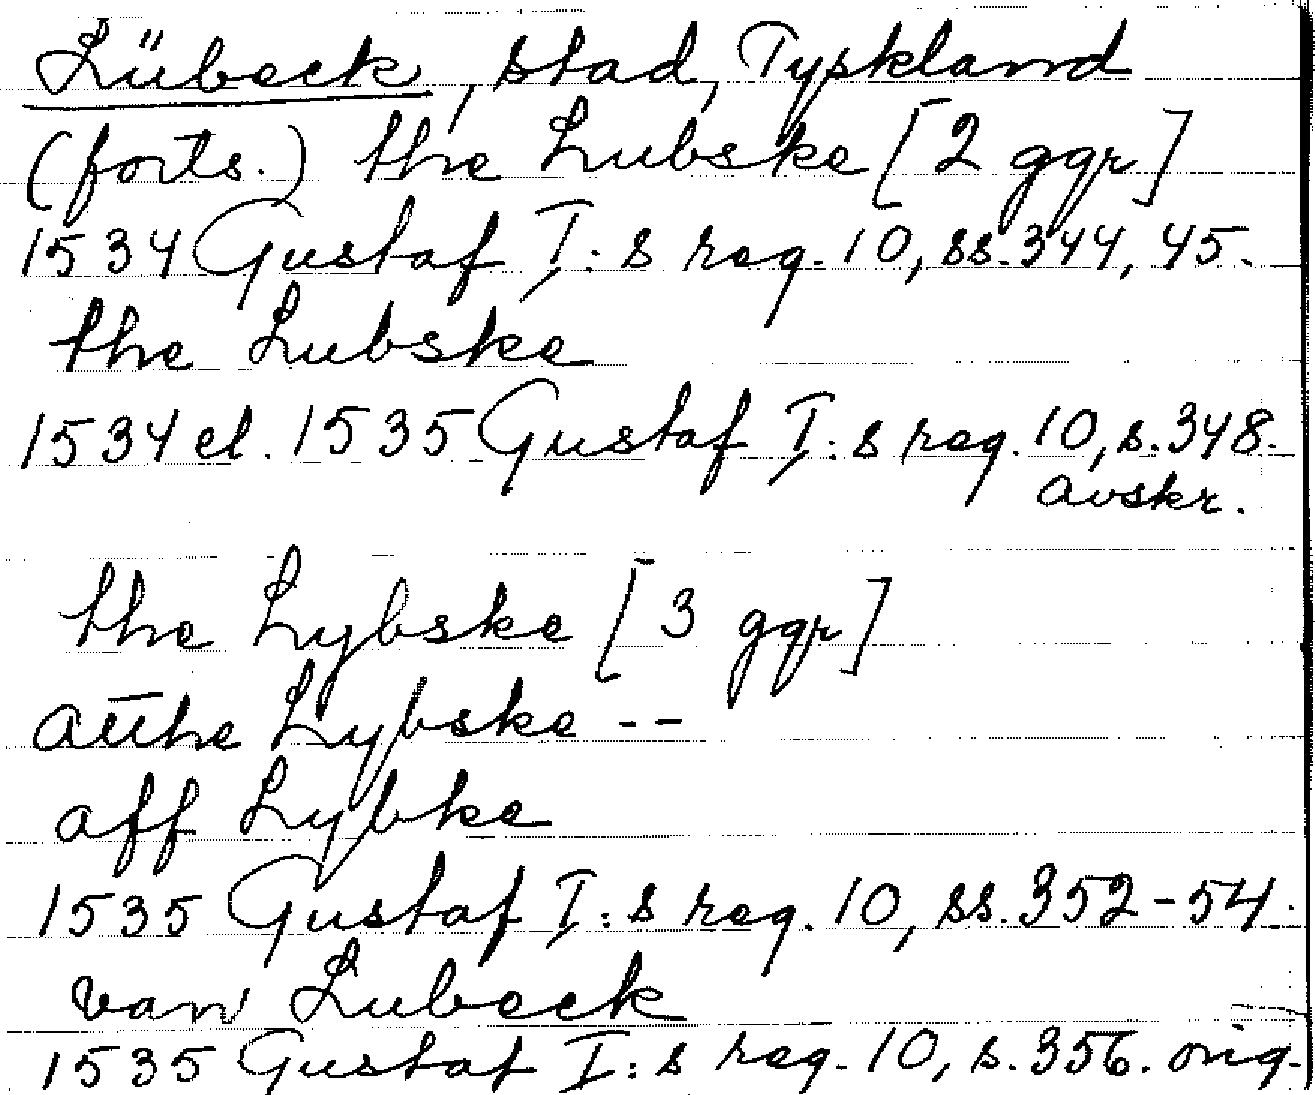 Lübeck, stad, Tyskland
(forts.) the Lubske [2 ggr]
1534 Gustaf I:s reg. 10, ss. 344, 45.
the Lubske
1534 el. 1535 Gustaf I:s reg. 10, s. 348.
avskr.
the Lybske [3 ggr]
atthe Lybske --
aff Lybke
1535 Gustaf I:s reg. 10, ss. 352-54.
van Lubeck
1535 Gustaf I:s reg. 10, s. 356. orig.